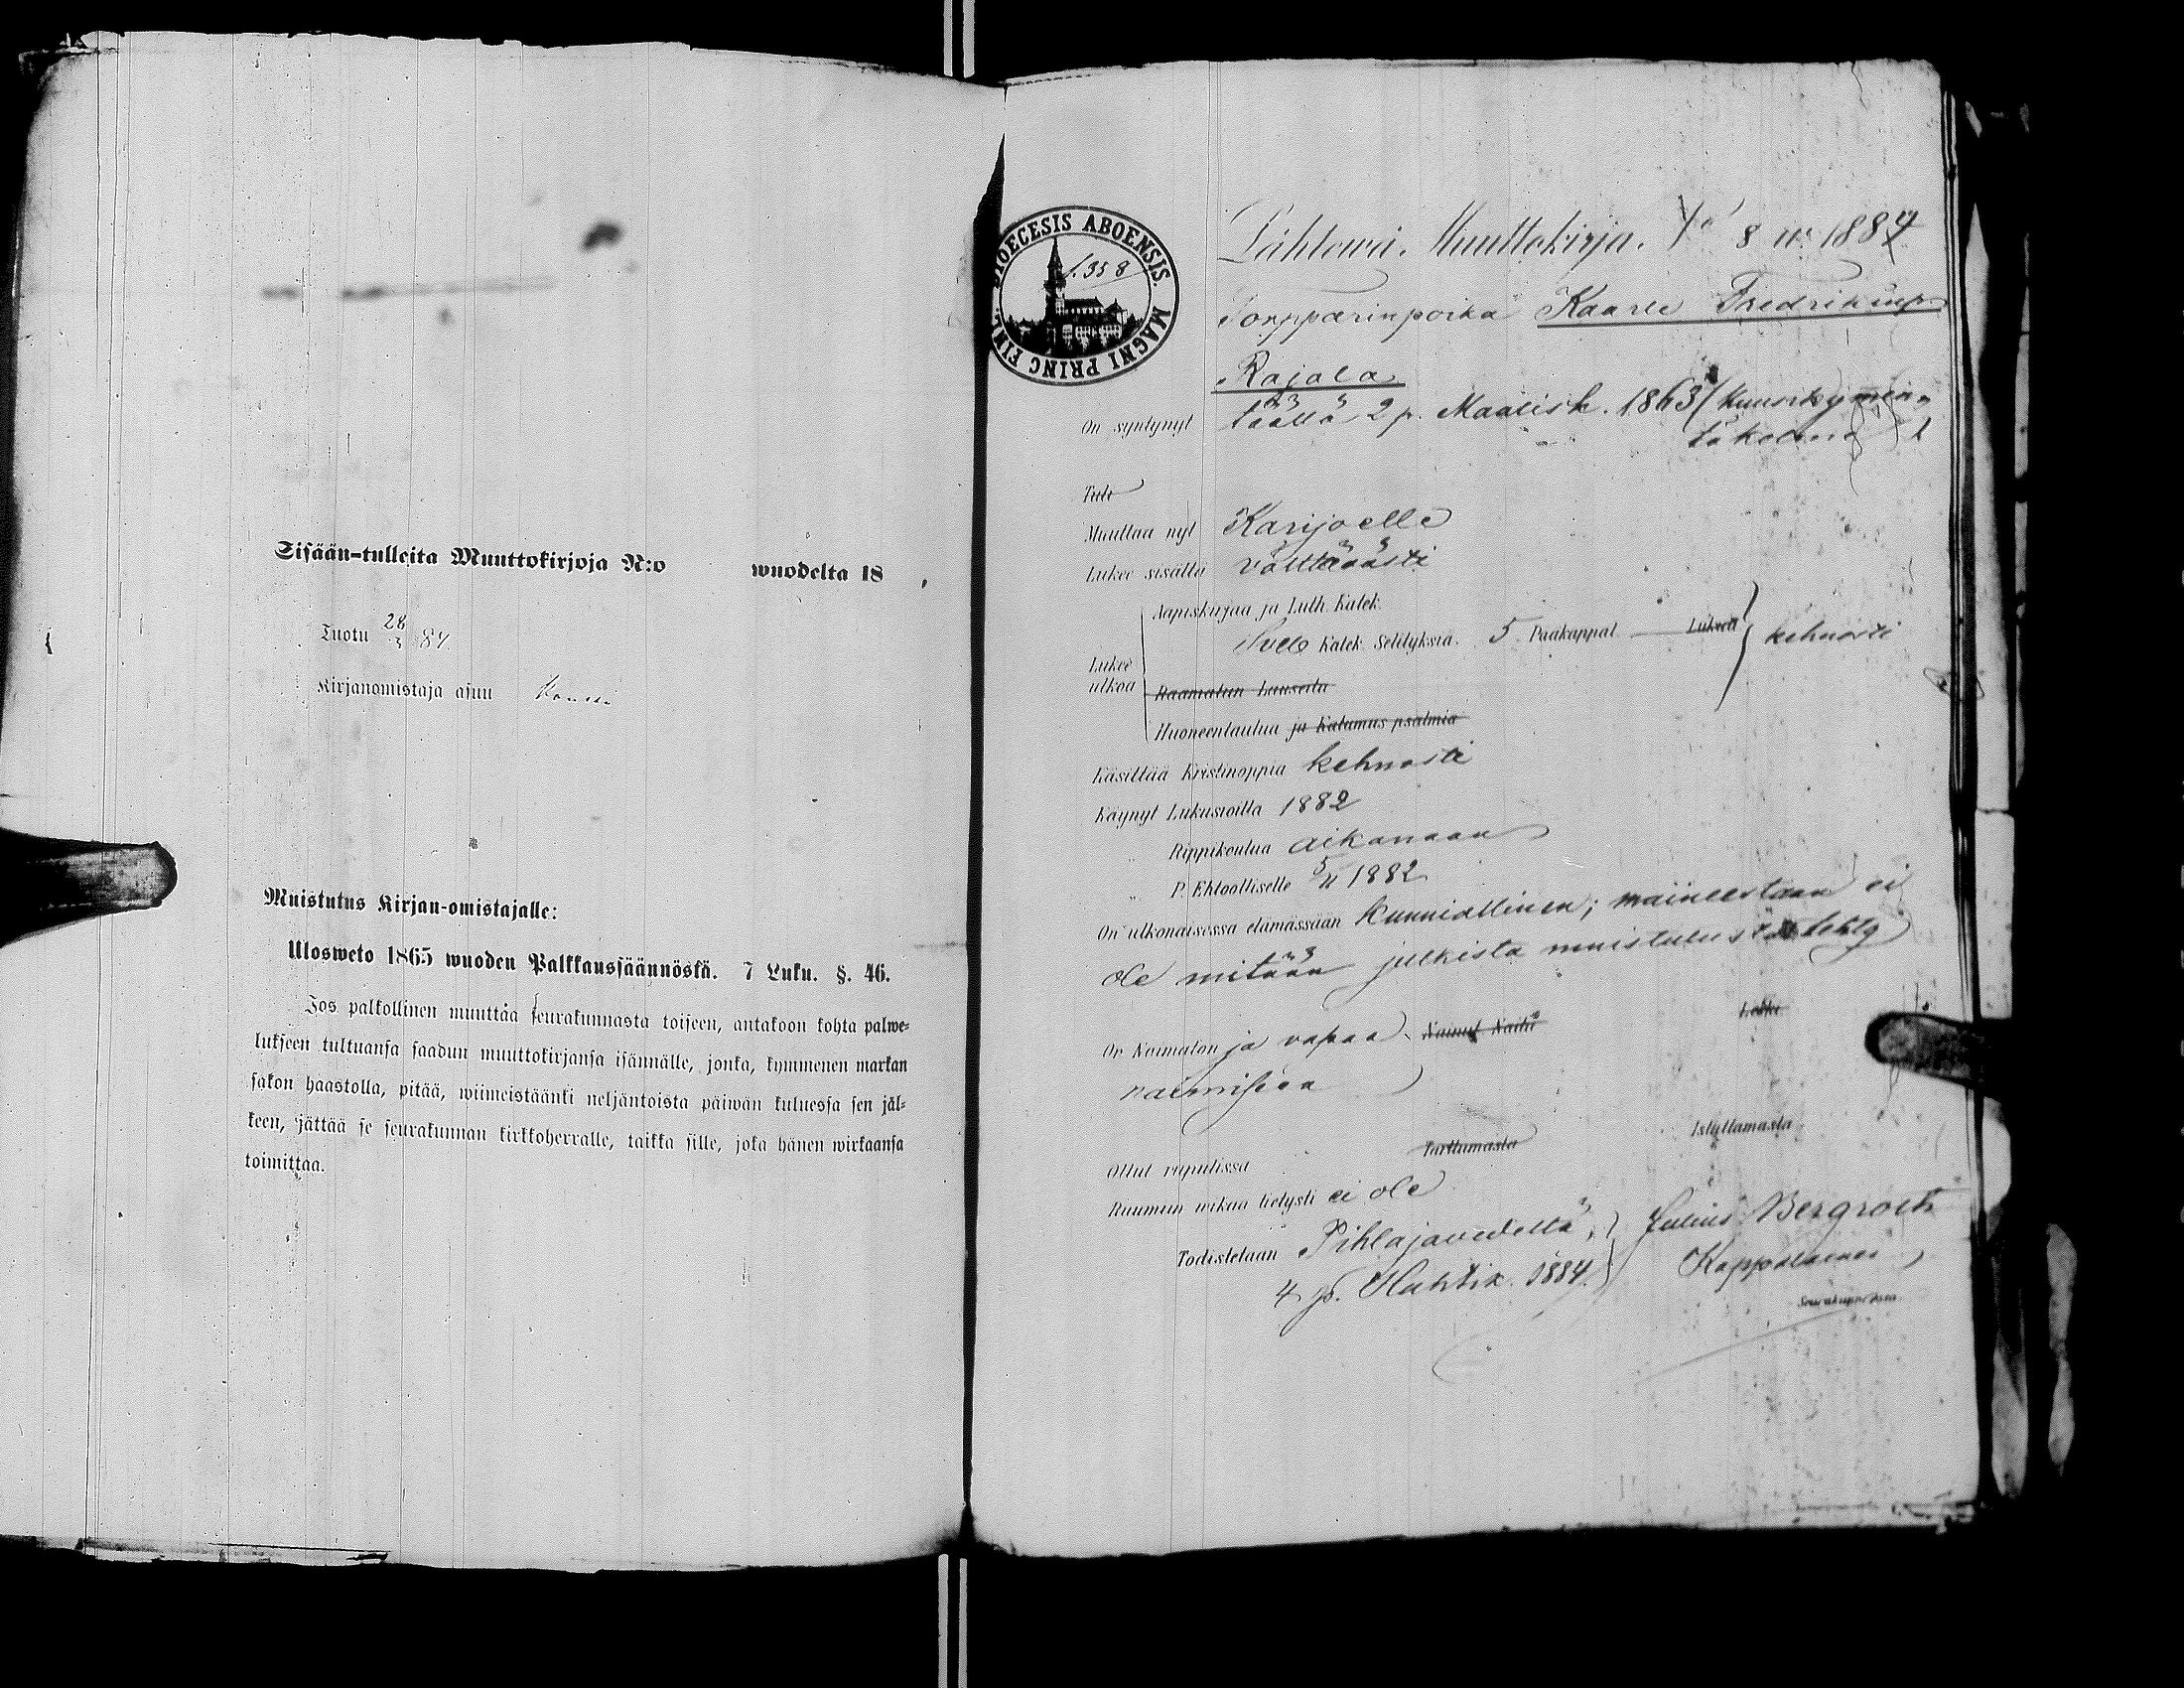 Sisään-tulleita Muuttokirjoja N:o wuodelta 18 .
Tuotu 28/3 84.
Kirjanomistaja asuu
Muistutus Kirjan-omistajalle:
Ulosweto 1865 wuoden Palkkaussäännöstä. 7 Luku. §. 46.
Jos palkollinen muuttaa seurakunnasta toiseen, antakoon kohta palwe-
lukseen tultuansa saadun muuttokirjansa isännälle, jonka, kymmenen markan
sakon haastolla, pitää, wiimeistäänki neljäntoista päiwän kuluessa sen jäl-
keen, jättää se seurakunnan kirkkoherralle, taikka sille, joka hänen wirkaansa
toimittaa.
DIOECESIS ABOENSIS. MAGNI PRINC FINL.
f. 358
Lähtewä. Muuttokirja. No 8 w. 1884
Torpparinpoika Kaarle Fredrikinp
Rajala
On syntynyt täällä 2 p. Maalisk. 1863 (kuusikymmen-
täkolme)
Tuli
Muuttaa nyt Karijoelle
Lukee sisältä välttävästi
Aapiskirjaa ja Luth. Katek.
Lukee ulkoa
Sveb Katek. Selityksiä. 5 Pääkappal Lukua kehnosti
Raamatun Lauseita
Huoneentaulua ja Katumus psalmia
Käsittää Kristinoppia kehnosti
Käynyt Lukusioilla 1882
" Rippikoulua aikanaan
" P. Ehtoolliselle 5/11 1882
On ulkonaisessa elämässään kunniallinen; maineestaan ei
ole mitään julkista muistutusta tehty
On Naimaton ja vapaa Nainut Naitu Leski
naimiseen
Ollut rupulissa Tarttumasta Istuttamasta
Ruumiin wikaa tietysti ei ole
Todistetaan Pihlajavedellä, Julius Bergroth
4 p. Huhtik. 1884. Kappalainen
Seurakunnassa